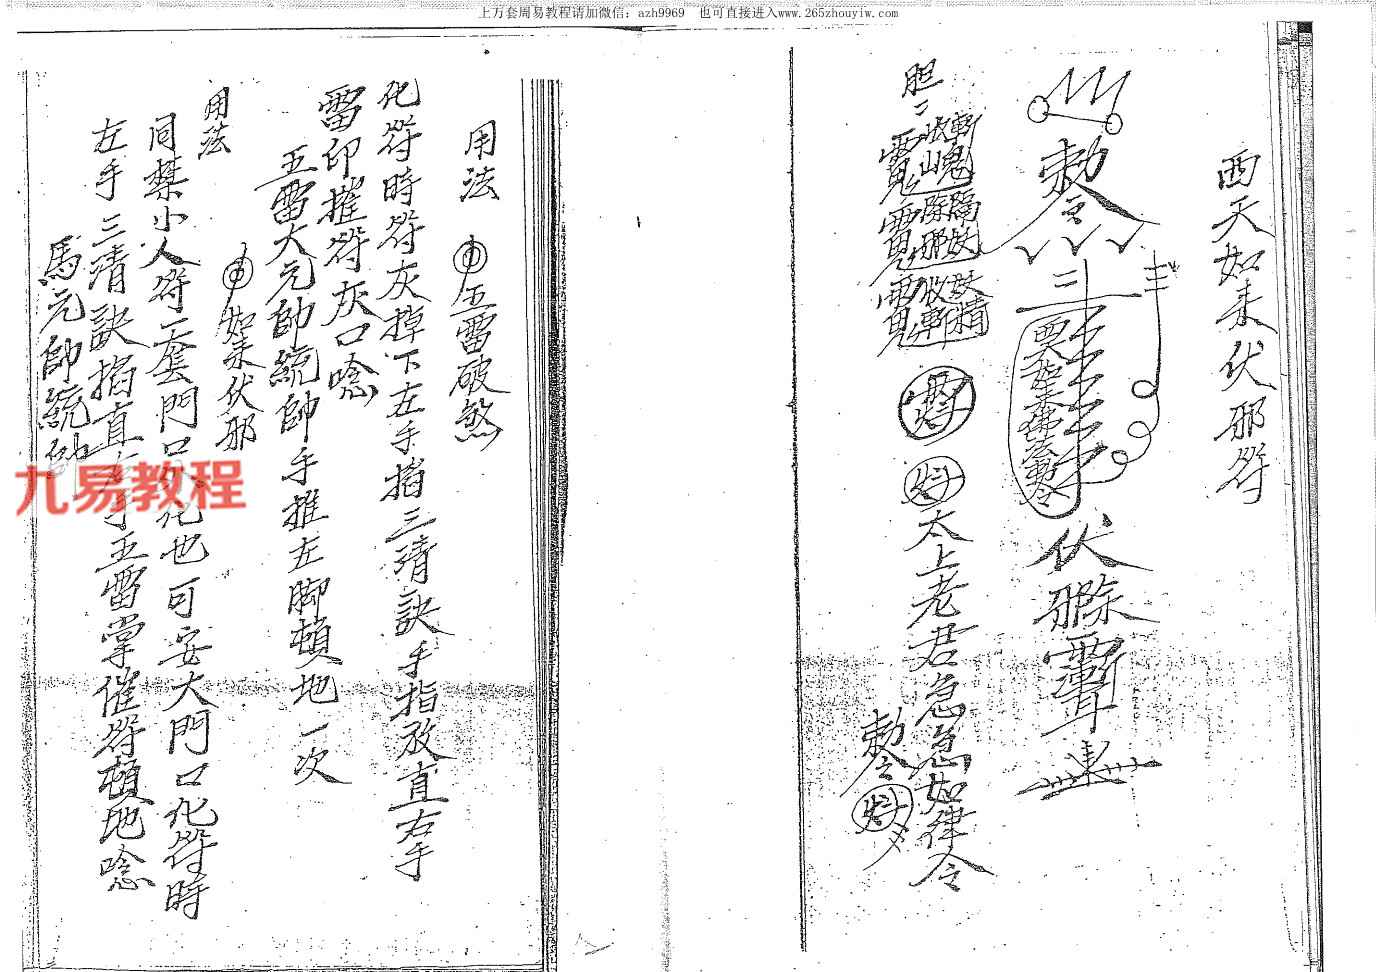 上万套周易教程请加微信：azh9969 也可直接进入www.265zhouyiw.com
西天如来伏邪符
敕令
西天如来佛法敕令
伏邪除
胆
斬鬼
收山
除邪
收斬
太上老君急急如律令
敕令
用法 五雷破煞
化符時符灰掉下左手掐三清訣手指放直右手
雷印摧符灰口唸
五雷大元帥統帥手推左脚頓地一次
用法 如来伏邪
同禁小人符一套門口化也可安大門口化符時
左手三清訣掐直右手五雷掌催符頓地唸
馬元帥統帥
九易教程